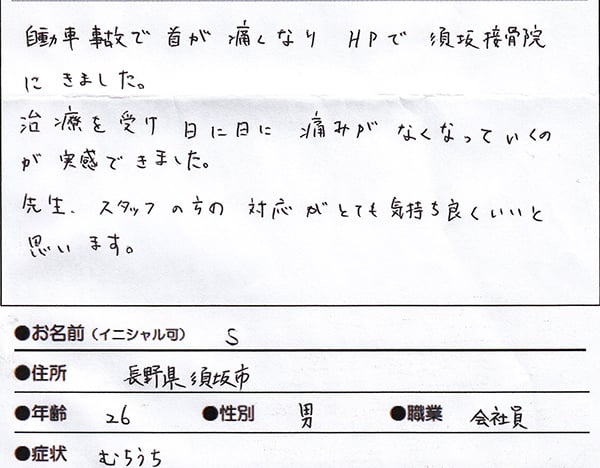 自動車事故で首が痛くなり HPで須坂接骨院
にきました。
治療を受け日に日に痛みがなくなっていくの
が実感できました。
先生、スタッフの方の対応がとても気持ち良くいいと
思います。
●お名前(イニシャル可) S
●住所 長野県須坂市
●年齢 26 ●性別 男 ●職業 会社員
●症状 むちうち